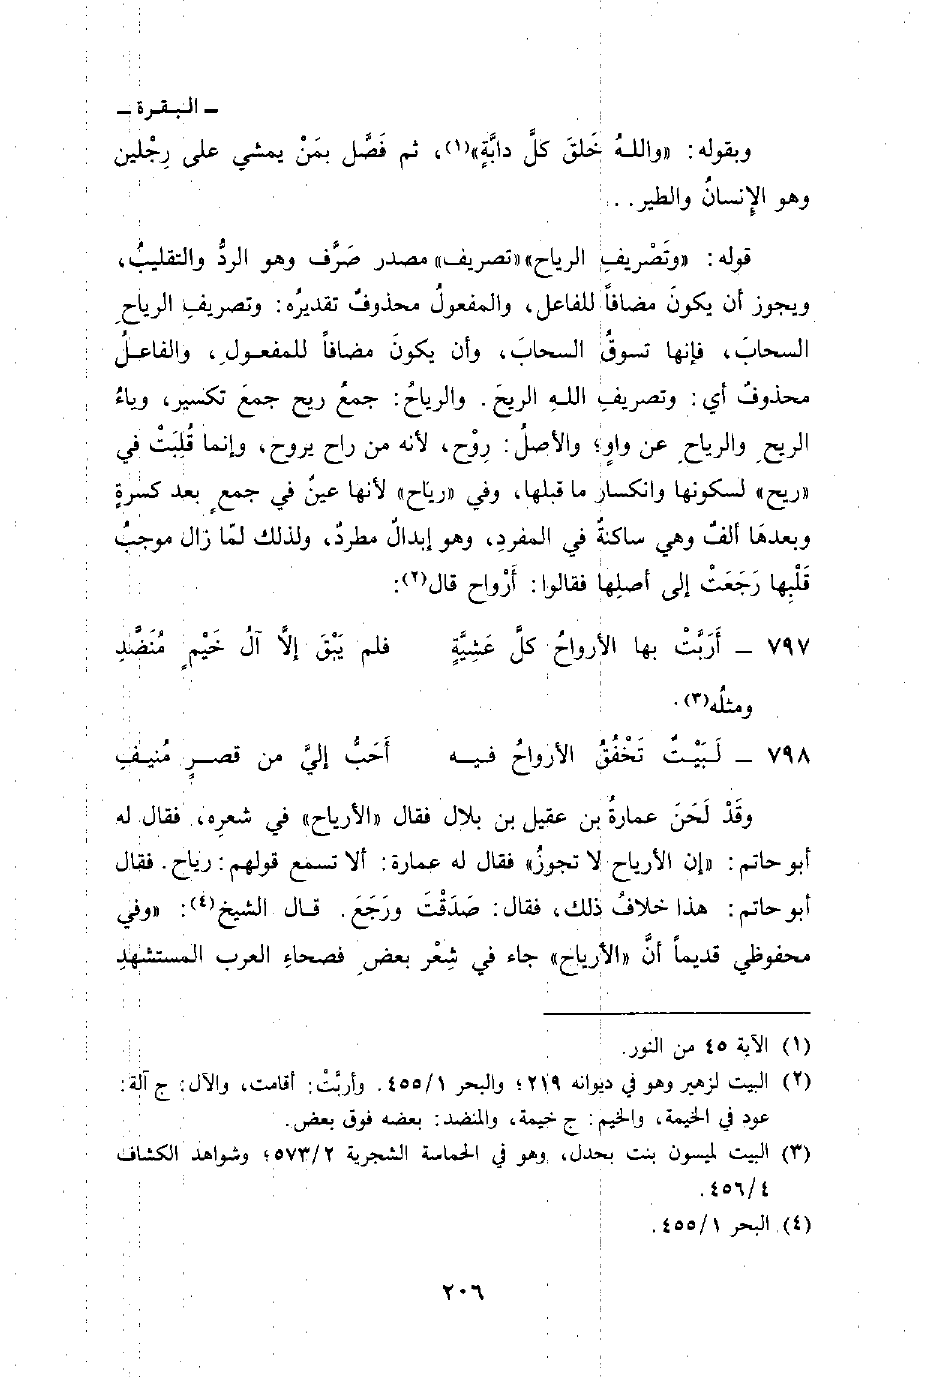 ـ البـقـرة ـ
وبقوله: «واللهُ خَلقَ كلَّ دابَّةٍ»(١)، ثم فَصَّل بمَنْ يمشي على رِجْلين
وهو الإِنسانُ والطير. .
قوله: «وتَصْريفِ الرياح» «تصريف» مصدر صَرَّف وهو الردُّ والتقليبُ،
ويجوز أن يكونَ مضافاً للفاعل، والمفعولُ محذوفٌ تقديرُه: وتصريفِ الرياحِ
السحابَ، فإنها تسوقُ السحابَ، وأن يكونَ مضافاً للمفعولِ، والفاعلُ
محذوفٌ أي: وتصريفِ اللهِ الريحَ. والرياحُ: جمعُ ريح جمعَ تكسير، وياءُ
الريحِ والرياحِ عن واوٍ؛ والأصلُ: رِوْح، لأنه من راح يروح، وإنما قُلِبَتْ في
«ريح» لسكونها وانكسارِ ما قبلها، وفي «رياح» لأنها عينٌ في جمعٍ بعد كسرةٍ
وبعدها ألفٌ وهي ساكنةٌ في المفردِ، وهو إبدالٌ مطردٌ، ولذلك لمّا زال موجبُ
قَلْبِها رَجَعَتْ إلى أصلِها فقالوا: أَرْواح قال(٢):
٧٩٧ ـ أَرَبَّتْ بها الأرواحُ كلَّ عَشِيَّةٍ فلم يَبْقَ إلاَّ آلُ خَيْمٍ مُنَضَّدِ
ومثلُه(٣).
٧٩٨ ـ لَبَيْتٌ تَخْفُقُ الأرواحُ فيه أَحَبُّ إليَّ من قصرٍ مُنيفِ
وقَدْ لَحَنَ عمارةُ بن عقيل بن بلال فقال «الأرياح» في شعرِه، فقال له
أبو حاتم: «إن الأرياح لا تجوزُ» فقال له عمارة: ألا تسمع قولهم: رياح. فقال
أبو حاتم: هذا خلافُ ذلك، فقال: صَدَقْتَ ورَجَعَ. قال الشيخ(٤): «وفي
محفوظي قديماً أنَّ «الأرياح» جاء في شِعْر بعضِ فصحاءِ العرب المستشهدِ
(١) الآية ٤٥ من النور.
(٢) البيت لزهير وهو في ديوانه ٢١٩؛ والبحر ٤٥٥/١. وأربَّتْ: أقامت، والآل: ج آلة:
عود في الخيمة، والخيم: ج خيمة، والمنضد: بعضه فوق بعض.
(٣) البيت لميسون بنت بحدل، وهو في الحماسة الشجرية ٥٧٣/٢؛ وشواهد الكشاف
٤٥٦/٤.
(٤) البحر ٤٥٥/١.
٢٠٦